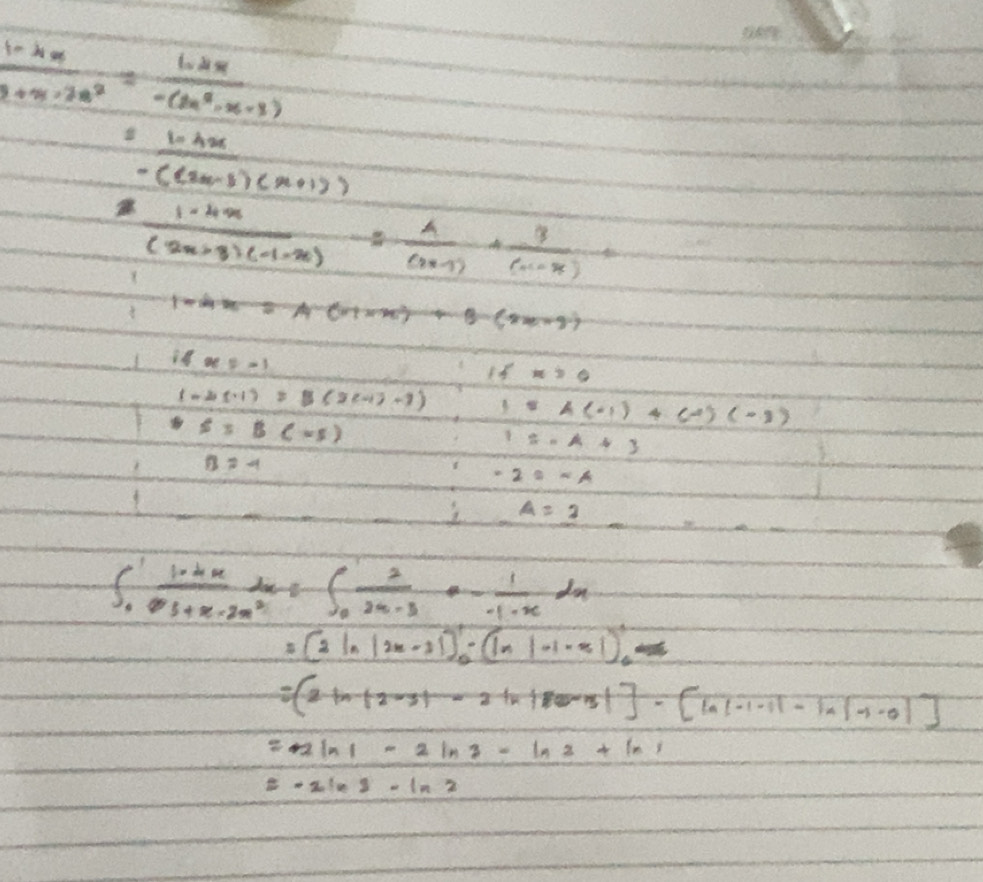 1-4x / 3+x-2x² = 1-4x / -(2x²-x-3)
= 1-4x / -((2x-3)(x+1))
= 1-4x / (2x-3)(-1-x) = A / (2x-3) + B / (-1-x)
1-4x = A(-1-x) + B(2x-3)
if x = -1
1-4(-1) = B(2(-1)-3)
5 = B(-5)
B = -1
if x = 0
1 = A(-1) + (-1)(-3)
1 = -A + 3
-2 = -A
A = 2
∫₀¹ 1-4x / 3+x-2x² dx = ∫₀¹ 2 / 2x-3 - 1 / -1-x dx
= [2 ln |2x-3|]₀¹ - [ln |-1-x|]₀¹
= [2 ln |2-3| - 2 ln |-3|] - [ln |-1-1| - ln |-1-0|]
= 2 ln 1 - 2 ln 3 - ln 2 + ln 1
= -2 ln 3 - ln 2